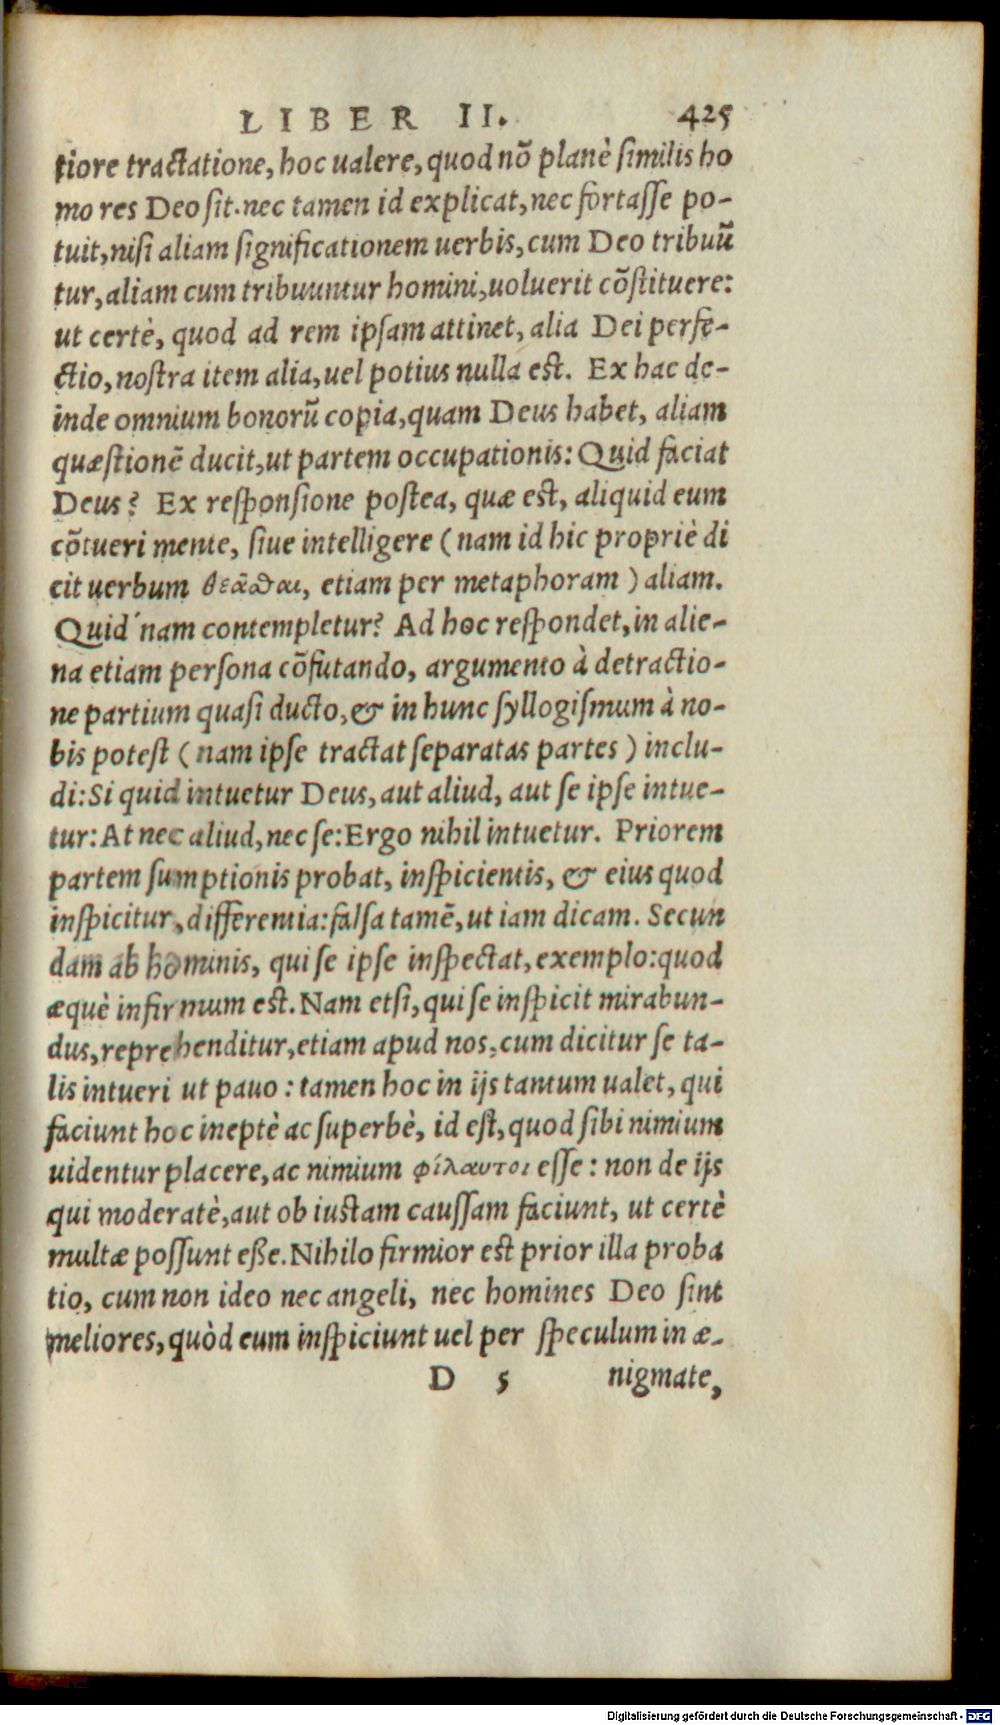 LIBER II. 425
tiore tractatione, hoc ualere, quod nõ planè similis ho
mo res Deo sit. nec tamen id explicat, nec fortasse po-
tuit, nisi aliam significationem uerbis, cum Deo tribuũ
tur, aliam cum tribuuntur homini, uoluerit cõstituere:
ut certè, quod ad rem ipsam attinet, alia Dei perfe-
ctio, nostra item alia, uel potius nulla est. Ex hac de-
inde omnium bonorũ copia, quam Deus habet, aliam
quæstionẽ ducit, ut partem occupationis: Quid faciat
Deus? Ex responsione postea, quæ est, aliquid eum
cõtueri mente, siue intelligere (nam id hic propriè di
cit uerbum θεᾶϑαι, etiam per metaphoram) aliam.
Quid´nam contempletur? Ad hoc respondet, in alie-
na etiam persona cõfutando, argumento à detractio-
ne partium quasi ducto, & in hunc syllogismum à no-
bis potest (nam ipse tractat separatas partes) inclu-
di: Si quid intuetur Deus, aut aliud, aut se ipse intue-
tur: At nec aliud, nec se: Ergo nihil intuetur. Priorem
partem sumptionis probat, inspicientis, & eius quod
inspicitur, differentia: falsa tamẽ, ut iam dicam. Secun
dam ab hominis, qui se ipse inspectat, exemplo: quod
æquè infirmum est. Nam etsi, qui se inspicit mirabun-
dus, reprehenditur, etiam apud nos, cum dicitur se ta-
lis intueri ut pauo: tamen hoc in ijs tantum ualet, qui
faciunt hoc ineptè ac superbè, id est, quod sibi nimium
uidentur placere, ac nimium φίλαυτοι esse: non de ijs
qui moderatè, aut ob iustam caussam faciunt, ut certè
multæ possunt eße. Nihilo firmior est prior illa proba
tio, cum non ideo nec angeli, nec homines Deo sint
meliores, quòd eum inspiciunt uel per speculum in æ-
D 5 nigmate,
Digitalisierung gefördert durch die Deutsche Forschungsgemeinschaft - DFG